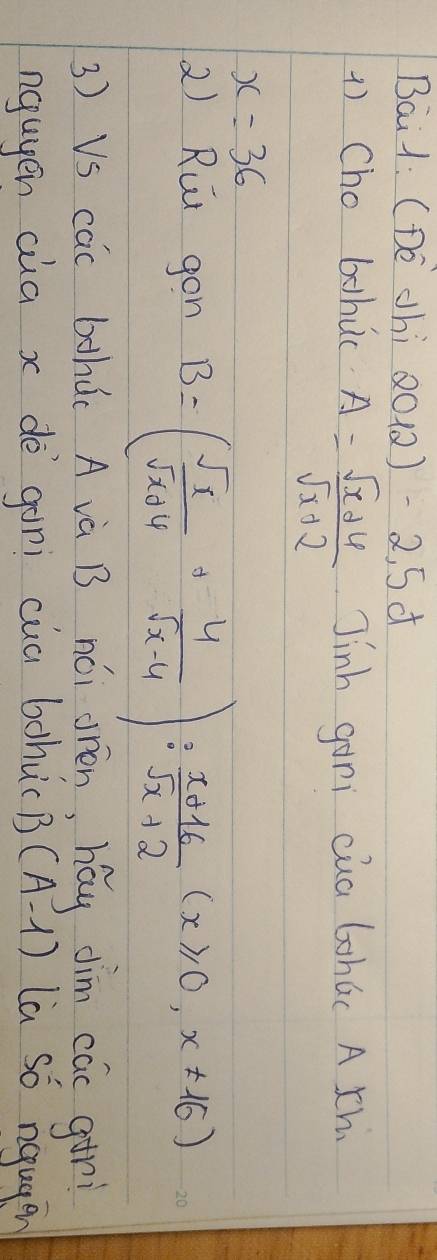 Bài 1: (Đề thi 2012) - 2,5đ
1) Cho bthức A = (√x+4)/(√x+2). Tính gtrị của bthức A khi
x = 36
2) Rút gọn B = (√x/(√x+4) + 4/(√x-4)) : (x+16)/(√x+2) (x ≥ 0, x ≠ 16)
3) Vs các bthức A và B nói trên, hãy tìm các gtrị
nguyên của x để gtrị của bthức B(A-1) là số nguyên
20